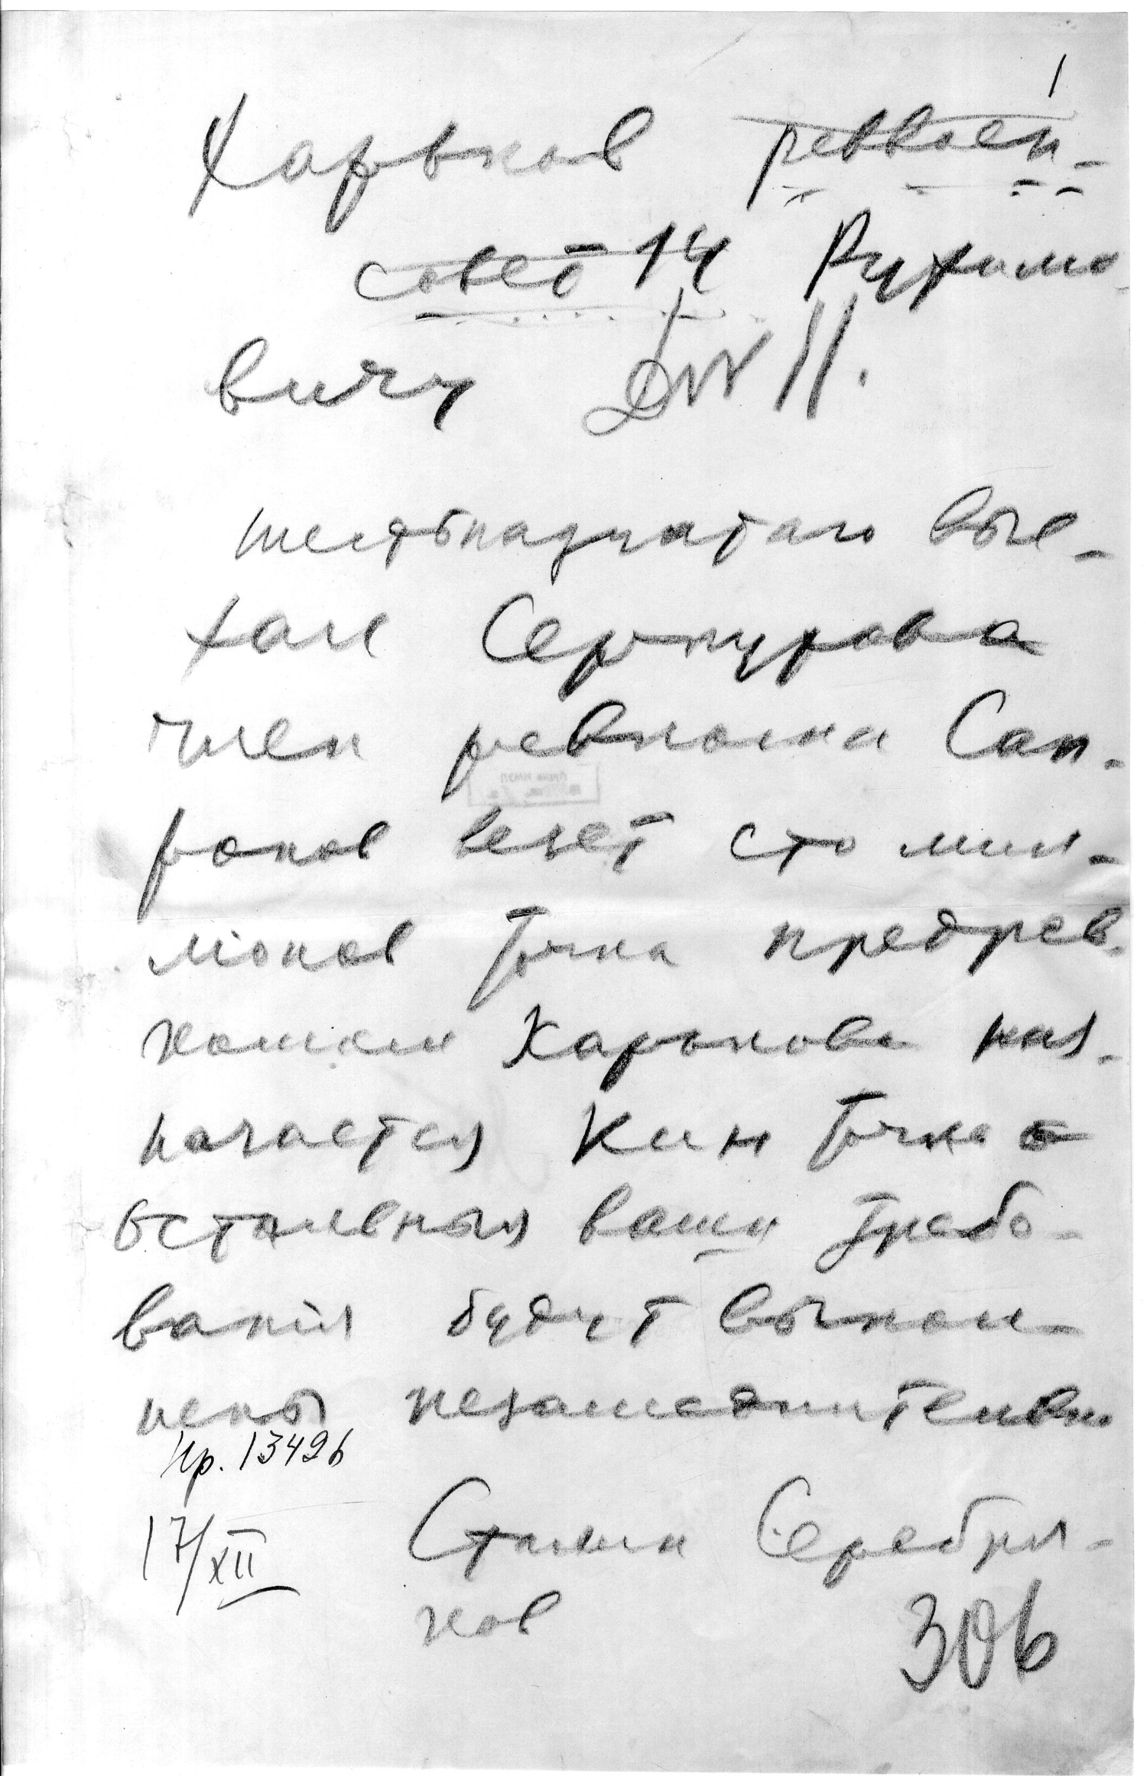 1
Харьков реввоен-
совет 14 Рухимо-
вичу
шестьнадцатаго вые-
хал Серпухова
член ревкома Сап-
ронов везет сто мил-
лiонов точка предрев-
комом Харькова наз-
начается Кин точка
остальныя ваши требо-
ванiя будут выпол-
нены незамедлительно
Нр. 1342б
17/XII Сталин Серебря-
ков
306